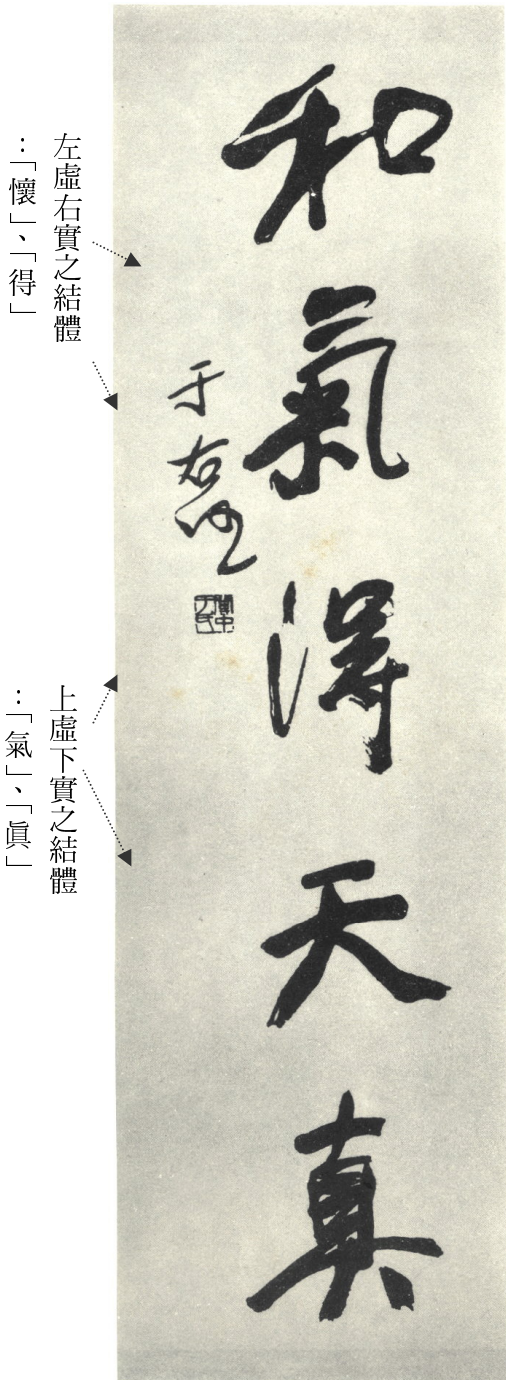 和氣得天真
于右任
關中于氏
左虛右實之結體
：「懷」、「得」
上虛下實之結體
：「氣」、「眞」